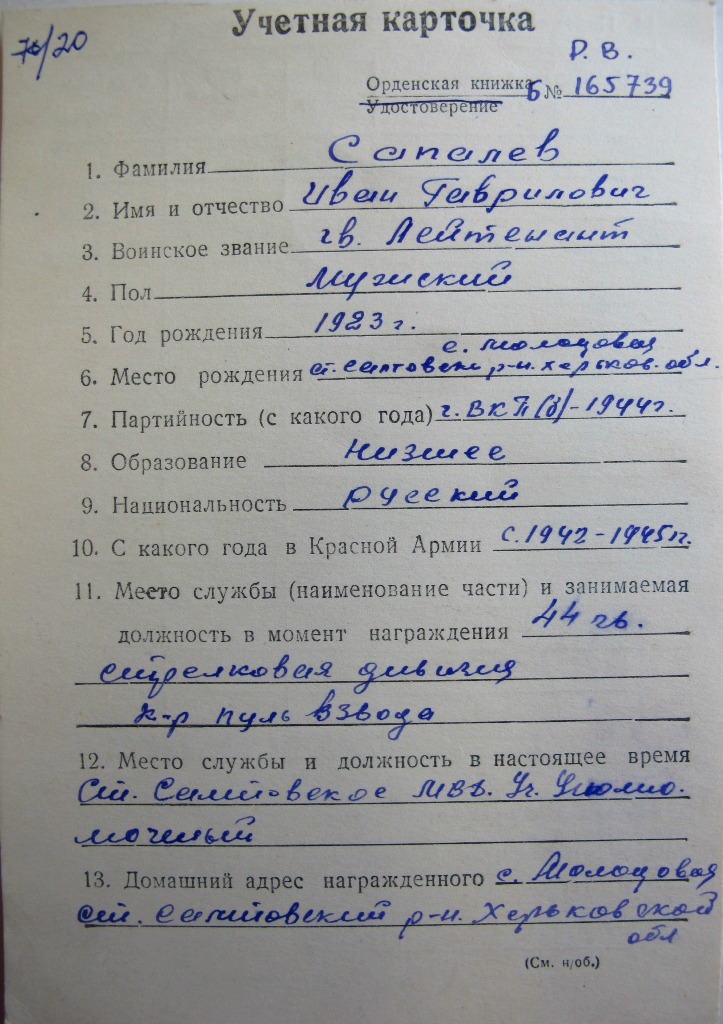 Учетная карточка
/20
Р. В.
Орденская книжка Б № 165739
Удостоверение
1. Фамилия Сапалев
2. Имя и отчество Иван Гаврилович
3. Воинское звание гв. Лейтенант
4. Пол мужской
5. Год рождения 1923 г.
с. Молодовая
6. Место рождения ст. Салтовски р-н. Харьков. обл.
7. Партийность (с какого года) ч. ВКП(б)-1944г.
8. Образование Низшее
9. Национальность русский
10. С какого года в Красной Армии с. 1942-1945гг.
11. Место службы (наименование части) и занимаемая
должность в момент награждения 44 гв.
стрелковая дивизия
к-р пуль взвода
12. Место службы и должность в настоящее время
Ст. Салтовское МВД. Уч. Уполно.
моченый
13. Домашний адрес награжденного с. Молодовая
ст. Салтовский р-н. Харьковской
обл
(См. н/об.)